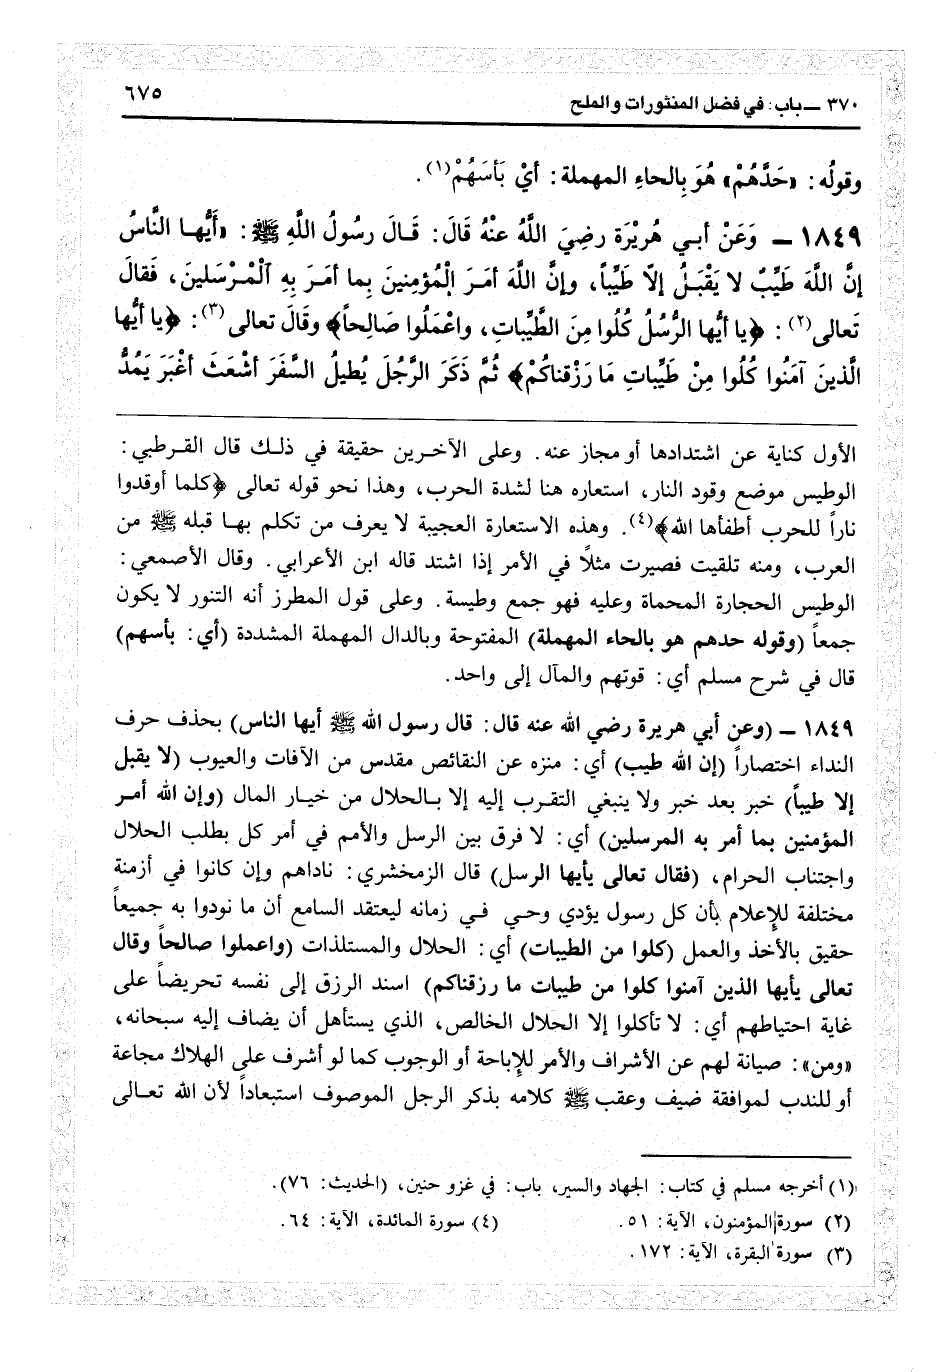 ٣٧٠ ــ باب: في فضل المنثورات والملح
٦٧٥
وقولُه: «حَدَّهُمْ» هُوَ بِالحاءِ المهملة: أيْ بَأسَهُمْ(١).
١٨٤٩ ــ وَعَنْ أبـي هُرَيْرَة رضِيَ اللَّهُ عنْهُ قَالَ: قَـالَ رسُولُ اللَّهِ ﷺ: «أَيُّهـا النَّاسُ
إنَّ اللَّهَ طَيِّبٌ لا يَقْبَـلُ إلَّا طَيِّباً، وإنَّ اللَّهَ أمَـرَ الْمُؤمِنينَ بِما أمَرَ بِهِ الْمُرْسَلينَ، فَقالَ
تَعالى(٢): ﴿يا أيُّها الرُّسُلُ كُلُوا مِنَ الطَّيِّباتِ، واعْمَلُوا صَالِحاً﴾ وقَالَ تعالى(٣): ﴿يا أيُّها
الَّذينَ آمَنُوا كُلُوا مِنْ طَيِّباتِ مَا رَزَقْناكُمْ﴾ ثُمَّ ذَكَرَ الرَّجُلَ يُطيلُ السَّفَرَ أشْعَثَ أغْبَرَ يَمُدُّ
الأول كناية عن اشتدادها أو مجاز عنه. وعلى الآخـرين حقيقة في ذلـك قال القـرطبي:
الوطيس موضع وقود النار، استعاره هنا لشدة الحرب، وهذا نحو قوله تعالى ﴿كلما أوقدوا
ناراً للحرب أطفأها الله﴾(٤). وهذه الاستعارة العجيبة لا يعرف من تكلم بهـا قبله ﷺ من
العرب، ومنه تلقيت فصيرت مثلًا في الأمر إذا اشتد قاله ابن الأعرابي. وقال الأصمعي:
الوطيس الحجارة المحماة وعليه فهو جمع وطيسة. وعلى قول المطرز أنه التنور لا يكون
جمعاً (وقوله حدهم هو بالحاء المهملة) المفتوحة وبالدال المهملة المشددة (أي: بأسهم)
قال في شرح مسلم أي: قوتهم والمآل إلى واحد.
١٨٤٩ ــ (وعن أبي هريرة رضي الله عنه قال: قال رسول الله ﷺ أيها الناس) بحذف حرف
النداء اختصاراً (إن الله طيب) أي: منزه عن النقائص مقدس من الآفات والعيوب (لا يقبل
إلا طيباً) خبر بعد خبر ولا ينبغي التقرب إليه إلا بـالحلال من خيـار المال (وإن الله أمـر
المؤمنين بما أمر به المرسلين) أي: لا فرق بين الرسل والأمم في أمر كل بطلب الحلال
واجتناب الحرام، (فقال تعالى يأيها الرسل) قال الزمخشري: ناداهم وإن كانوا في أزمنة
مختلفة للإعلام بأن كل رسول يؤدي وحـي فـي زمانه ليعتقد السامع أن ما نودوا به جميعاً
حقيق بالأخذ والعمل (كلوا من الطيبات) أي: الحلال والمستلذات (واعملوا صالحاً وقال
تعالى يأيها الذين آمنوا كلوا من طيبات ما رزقناكم) اسند الرزق إلى نفسه تحريضاً على
غاية احتياطهم أي: لا تأكلوا إلا الحلال الخالص، الذي يستأهل أن يضاف إليه سبحانه،
«ومن»: صيانة لهم عن الأشراف والأمر للإباحة أو الوجوب كما لو أشرف على الهلاك مجاعة
أو للندب لموافقة ضيف وعقب ﷺ كلامه بذكر الرجل الموصوف استبعاداً لأن الله تعـالى
(١) أخرجه مسلم في كتاب: الجهاد والسير، باب: في غزو حنين، (الحديث: ٧٦).
(٢) سورة المؤمنون، الآية: ٥١.
(٤) سورة المائدة، الآية: ٦٤.
(٣) سورة البقرة، الآية: ١٧٢.